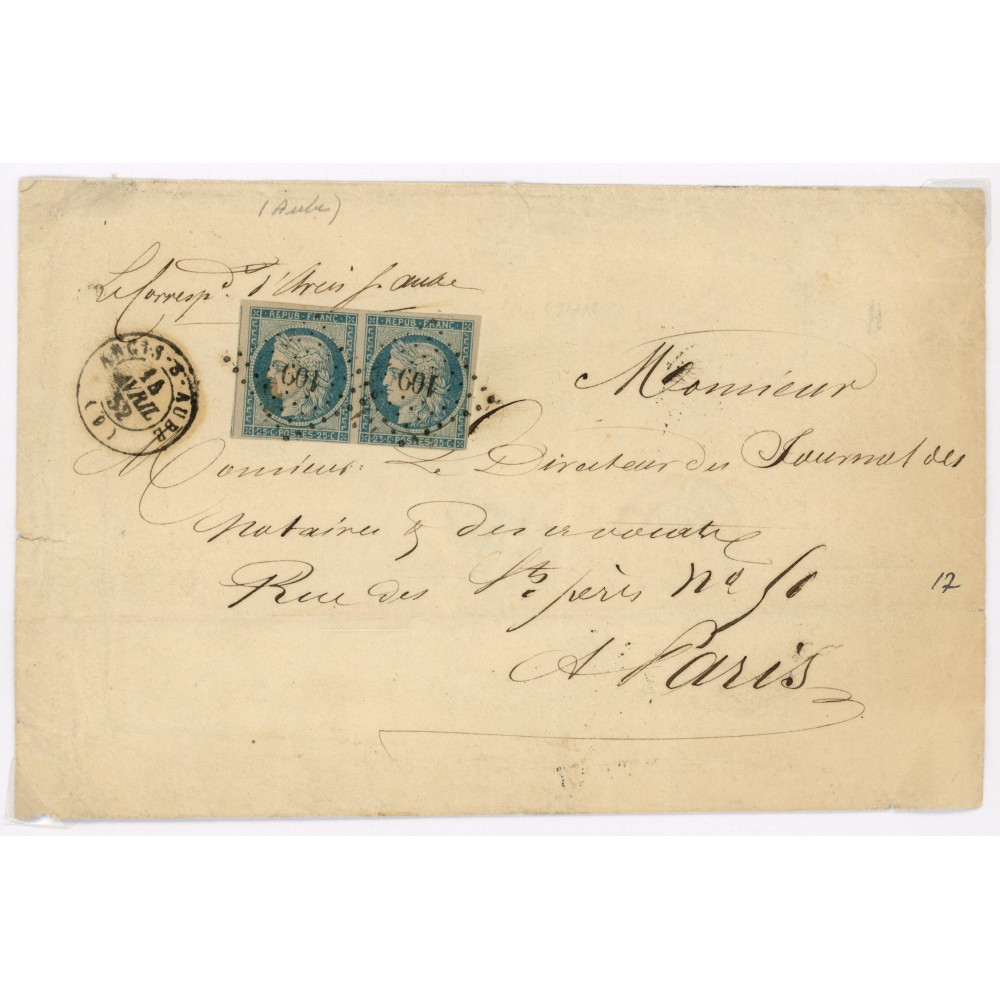 (Aube)
Le Correspd. d'Arcis s/ aube
ARCIS-S-AUBE
14
AVRIL
52
(9)
REPUB · FRANC · REPUB · FRANC ·
109 109
25·C·POSTES·25·C 25·C·POSTES·25·C
Monsieur
Monsieur Le Directeur des Journal des
notaires & des avocats
Rue des Sts. pères No 50
A Paris
17